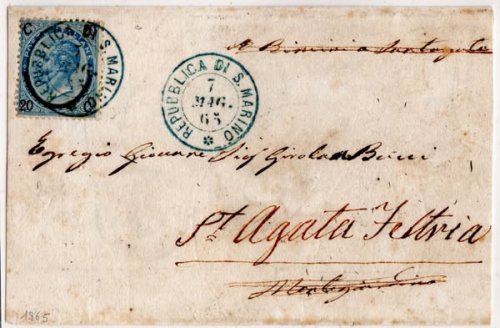 C 20 20 C
REPUBBLICA DI S. MARINO
REPUBBLICA DI S. MARINO
7
MAG.
65
a Rimini a Santagata
Egregio Giovane Sig Girolamo Bucci
St Agata Feltria
1865